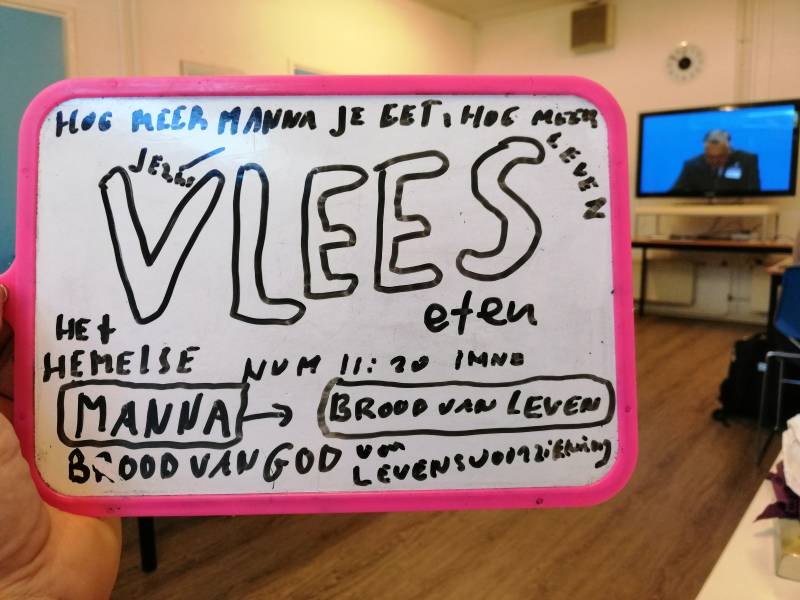 HOE MEER MANNA JE EET, HOE MEER
LEVEN
VLEES
eten
HET
HEMELSE NUM 11:20 IMNB
MANNA → BROOD VAN LEVEN
BROOD VAN GOD van
LEVENSVOORZIENING